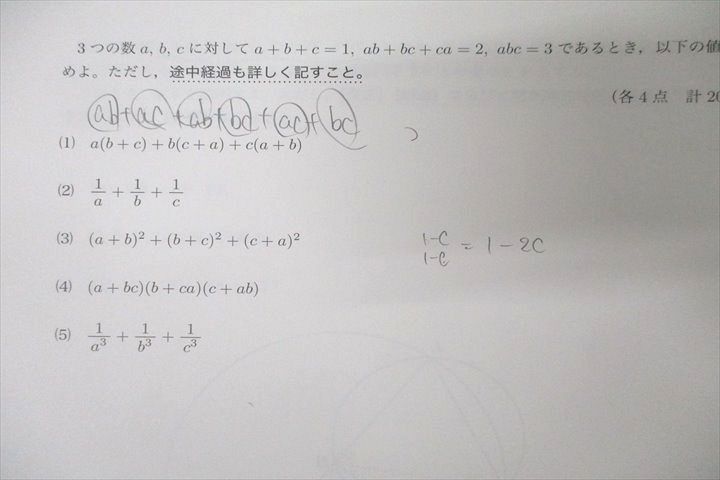 3つの数 a, b, c に対して a + b + c = 1, ab + bc + ca = 2, abc = 3 であるとき，以下の値
めよ。ただし，途中経過も詳しく記すこと。
(各4点 計20
ab+ac+ab+bc+ac+bc
(1) a(b + c) + b(c + a) + c(a + b)
(2) 1/a + 1/b + 1/c
(3) (a + b)² + (b + c)² + (c + a)²
1-C
1-C = 1-2C
(4) (a + bc)(b + ca)(c + ab)
(5) 1/a³ + 1/b³ + 1/c³